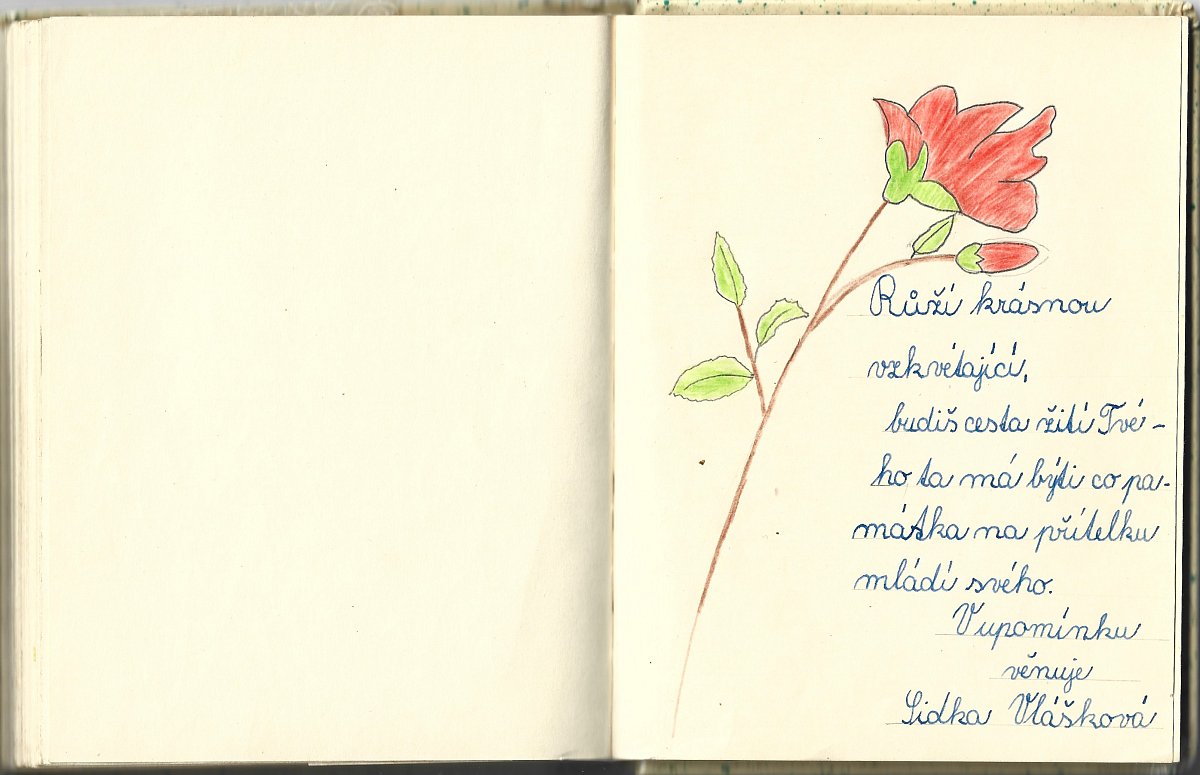 Růží krásnou
vzkvétající,
budiš cesta žití Tvé-
ho ta má býti co pa-
mátka na přítelku
mládí svého.
V upomínku
věnuje
Lidka Vlášková